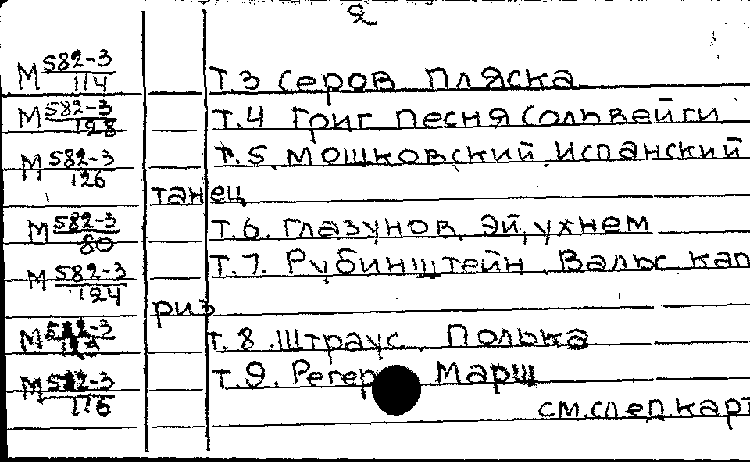 2
М 582-3/114 Т.3 Серов Пляска
М 582-3/128 Т.4 Григ Песня Сольвейги
М 582-3/126 Т.5. Мошковский Испанский
танец
М 582-3/80 Т.6. Глазунов Эй, ухнем
М 582-3/124 Т.7. Рубинштейн Вальс кап
риз
М 582-3 Т.8. Штраус Полька
М 582-3/116 Т.9. Регер Марш
см.след карт